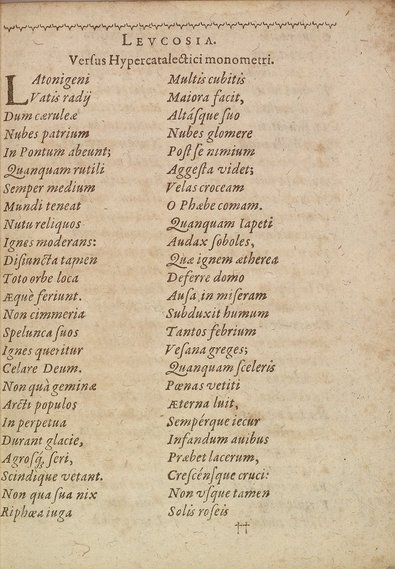 LEVCOSIA.
Versus Hypercatalectici monometri.
LAtonigeni
Vatis radij
Dum cæruleæ
Nubes patrium
In Pontum abeunt;
Quanquam rutili
Semper medium
Mundi teneat
Nutu reliquos
Ignes moderans:
Disiuncta tamen
Toto orbe loca
Æque feriunt.
Non cimmeria
Spelunca suos
Ignes queritur
Celare Deum.
Non quà geminæ
Arcti populos
In perpetua
Durant glacie,
Agrosq́; seri,
Scindique vetant.
Non qua sua nix
Riphæa iuga
Multis cubitis
Maiora facit,
Altásque suo
Nubes glomere
Post se nimium
Aggesta videt;
Velas croceam
O Phœbe comam.
Quanquam Iapeti
Audax soboles,
Quæ ignem ætherea
Deferre domo
Ausa in miseram
Subduxit humum
Tantos febrium
Vesana greges;
Quanquam sceleris
Pœnas vetiti
Æterna luit,
Sempérque iecur
Infandum auibus
Præbet lacerum,
Crescénsque cruci:
Non vsque tamen
Solis roseis
††